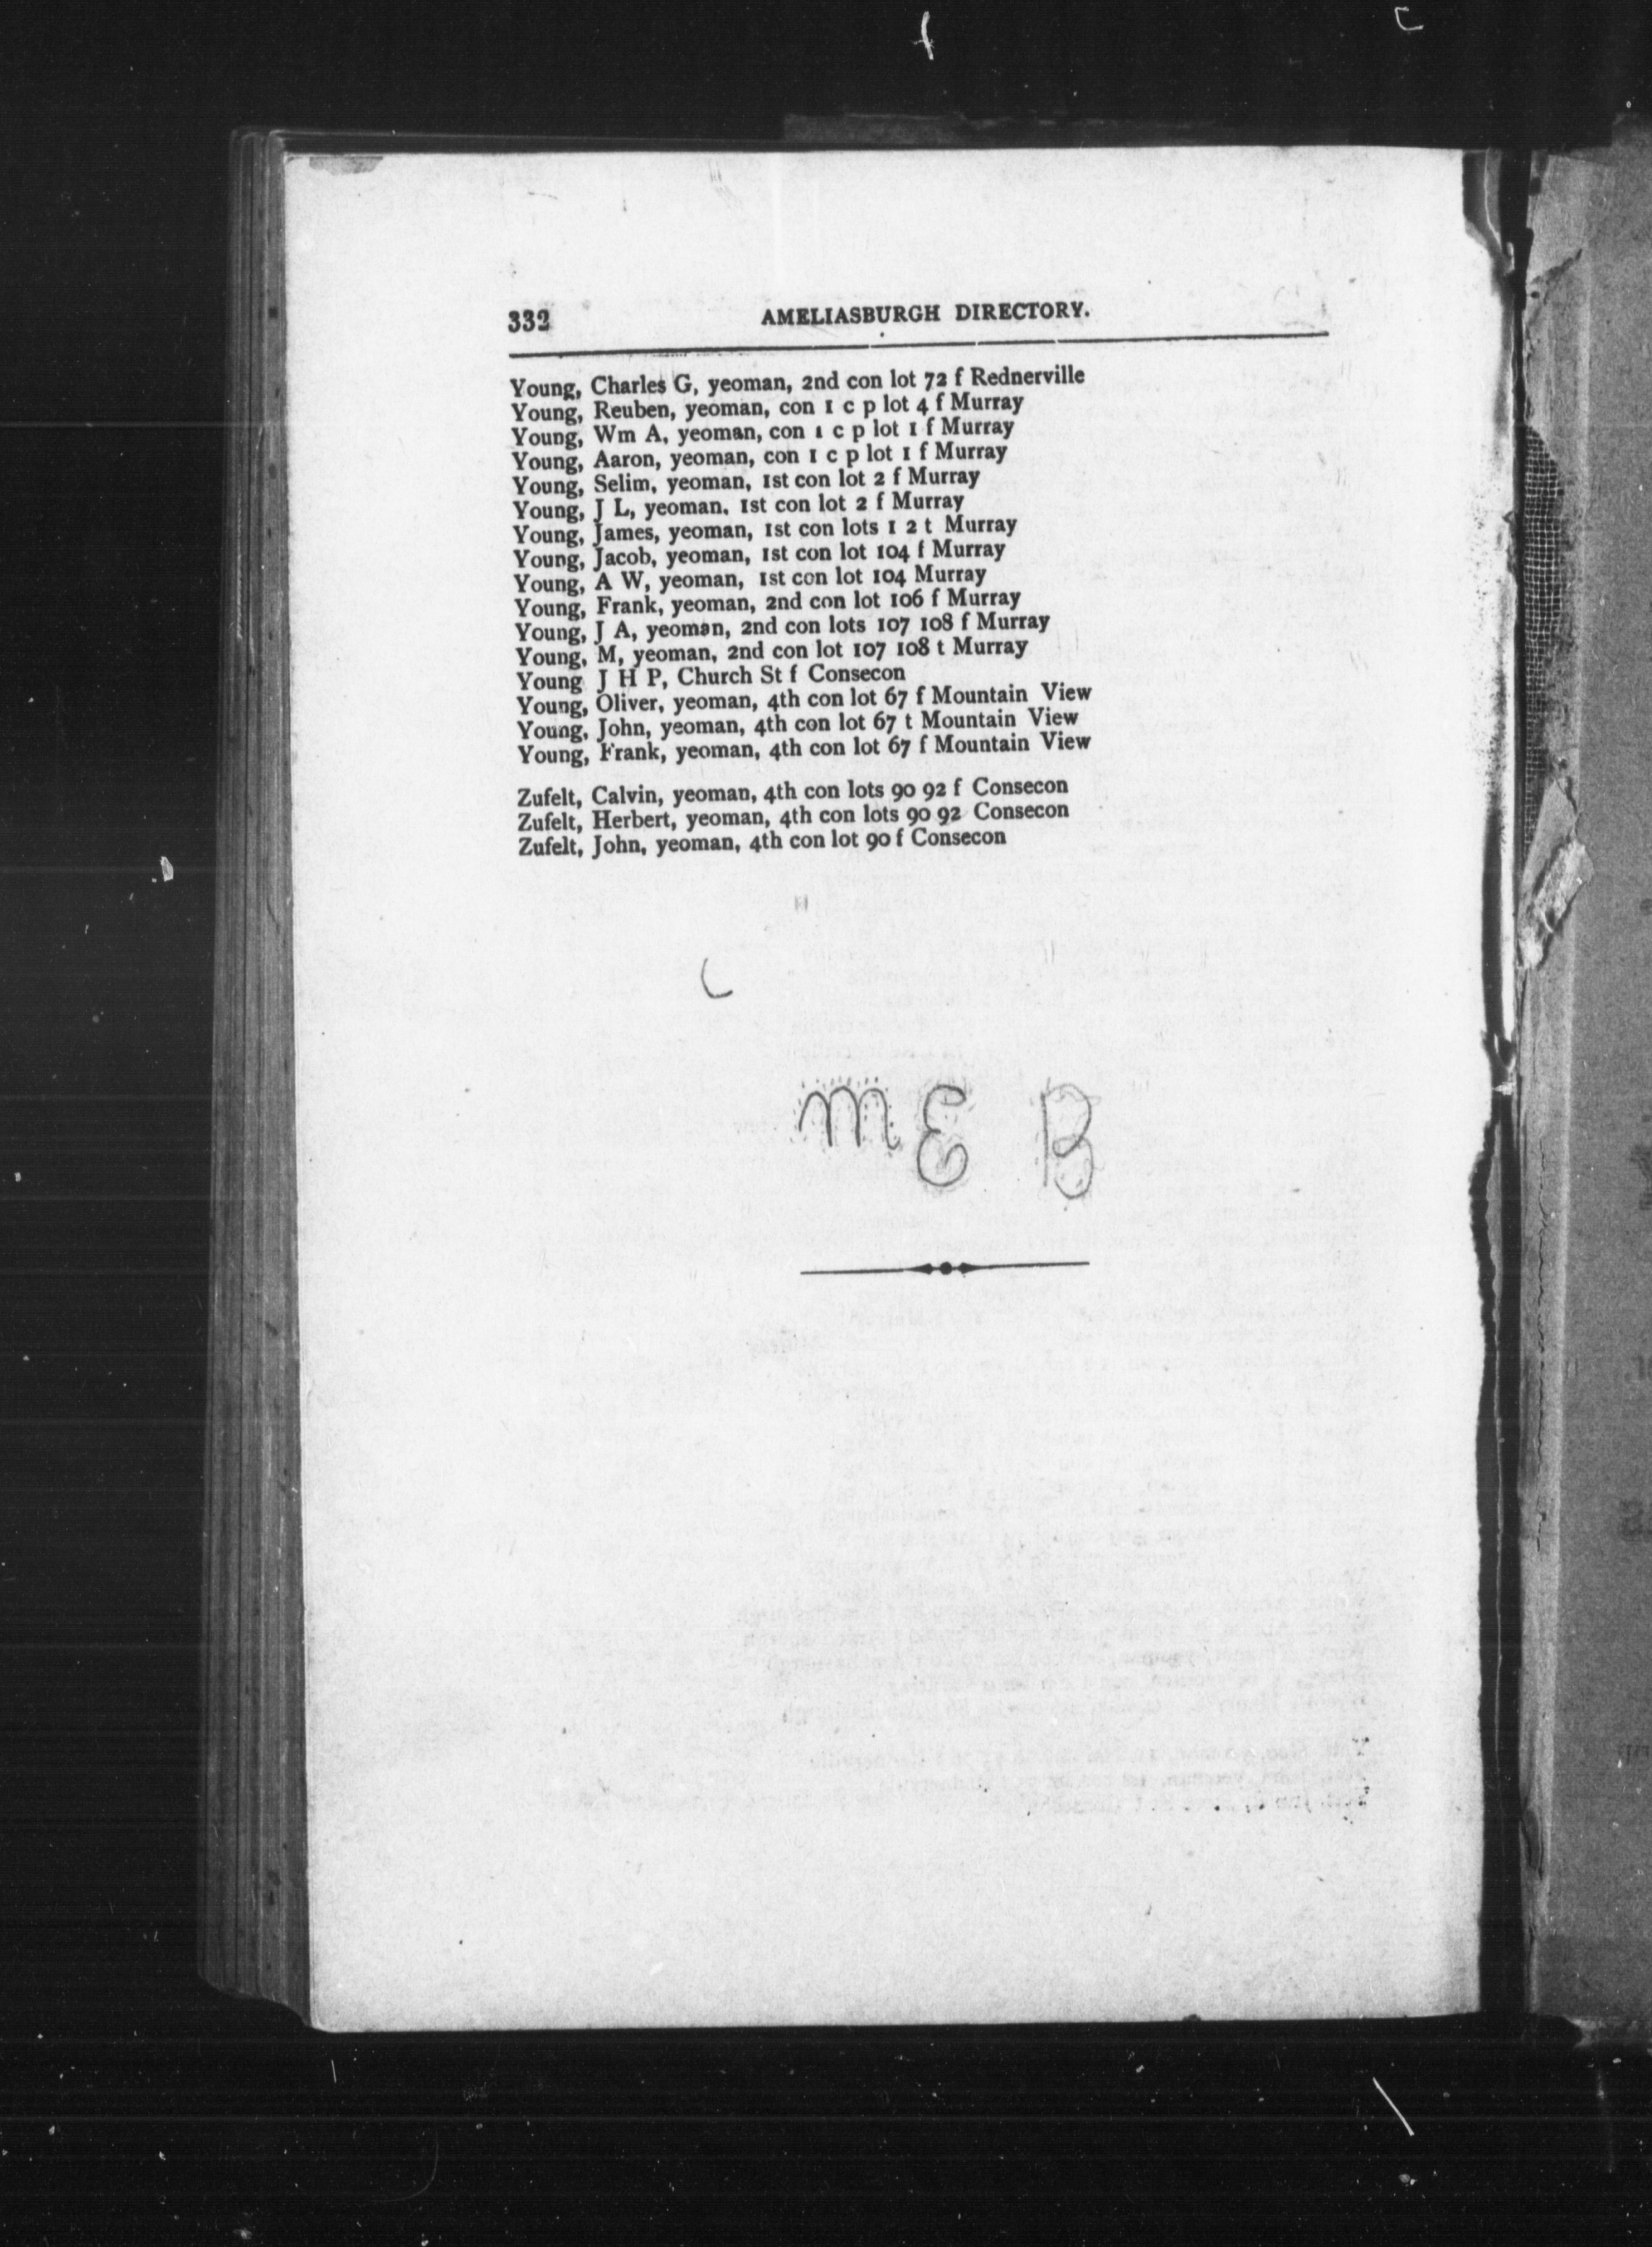 332 AMELIASBURGH DIRECTORY.
Young, Charles G, yeoman, 2nd con lot 72 f Rednerville
Young, Reuben, yeoman, con 1 c p lot 4 f Murray
Young, Wm A, yeoman, con 1 c p lot 1 f Murray
Young, Aaron, yeoman, con 1 c p lot 1 f Murray
Young, Selim, yeoman, 1st con lot 2 f Murray
Young, J L, yeoman. 1st con lot 2 f Murray
Young, James, yeoman, 1st con lots 1 2 t Murray
Young, Jacob, yeoman, 1st con lot 104 f Murray
Young, A W, yeoman, 1st con lot 104 Murray
Young, Frank, yeoman, 2nd con lot 106 f Murray
Young, J A, yeoman, 2nd con lots 107 108 f Murray
Young, M, yeoman, 2nd con lot 107 108 t Murray
Young J H P, Church St f Consecon
Young, Oliver, yeoman, 4th con lot 67 f Mountain View
Young, John, yeoman, 4th con lot 67 t Mountain View
Young, Frank, yeoman, 4th con lot 67 f Mountain View
Zufelt, Calvin, yeoman, 4th con lots 90 92 f Consecon
Zufelt, Herbert, yeoman, 4th con lots 90 92 Consecon
Zufelt, John, yeoman, 4th con lot 90 f Consecon
M E B